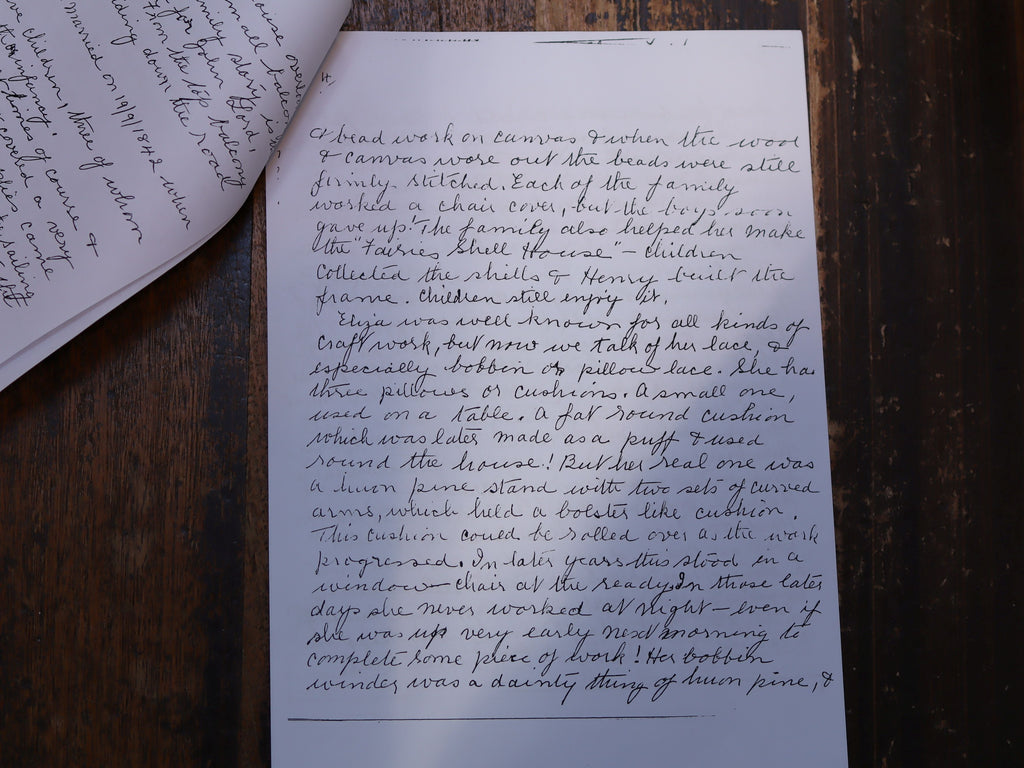 ouse over
small balcon
mily story is
for John Lord,
From the top balcony
ding down the road
married on 19/9/1842 when
ve children, three of whom
infancy.
times of course &
covered a very
came
sailing
4.
& bead work on canvas & when the wool
& canvas wore out the beads were still
firmly stitched. Each of the family
worked a chair cover, but the boys soon
gave up! The family also helped her make
the "Fairies Shell House" – children
collected the shells & Henry built the
frame. Children still enjoy it.
Eliza was well known for all kinds of
craft work, but now we talk of her lace, &
especially bobbin or pillow lace. She ha
three pillows or cushions. A small one,
used on a table. A fat round cushion
which was later made as a puff & used
round the house! But her real one was
a huon pine stand with two sets of curved
arms, which held a bolster like cushion.
This cushion could be rolled over as the work
progressed. In later years this stood in a
window – chair at the ready. In those later
days she never worked at night – even if
she was up very early next morning to
complete some piece of work! Her bobbin
winder was a dainty thing of huon pine, &